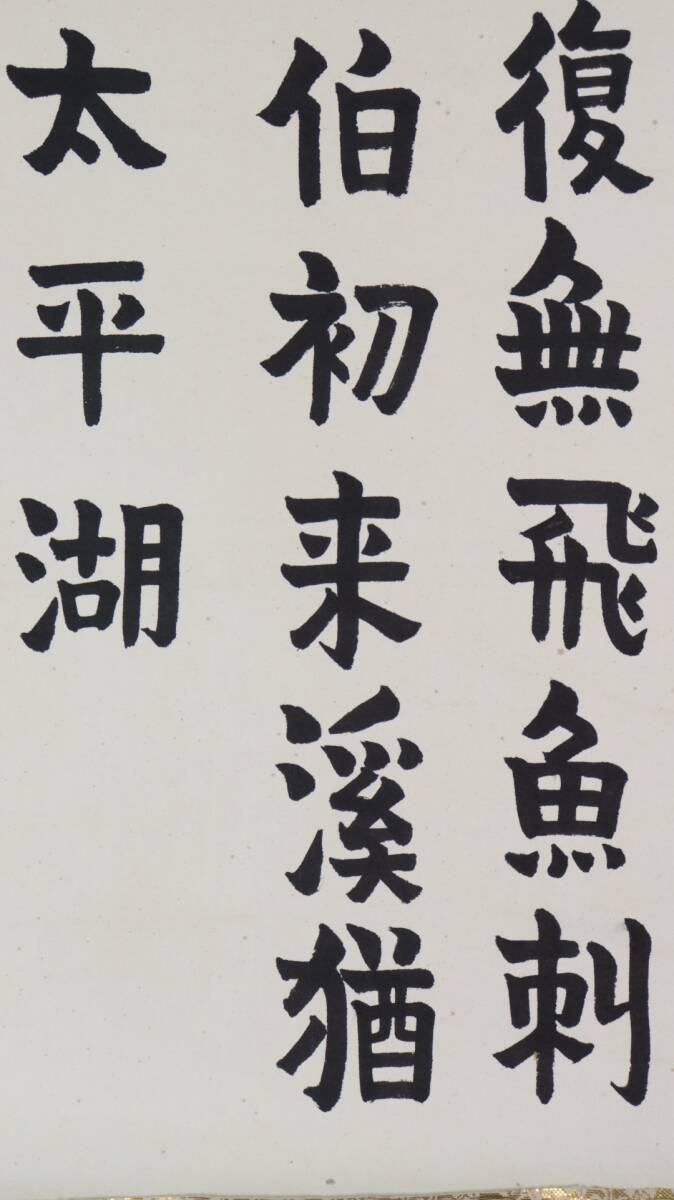 復無飛魚刺
伯初来溪猶
太平湖